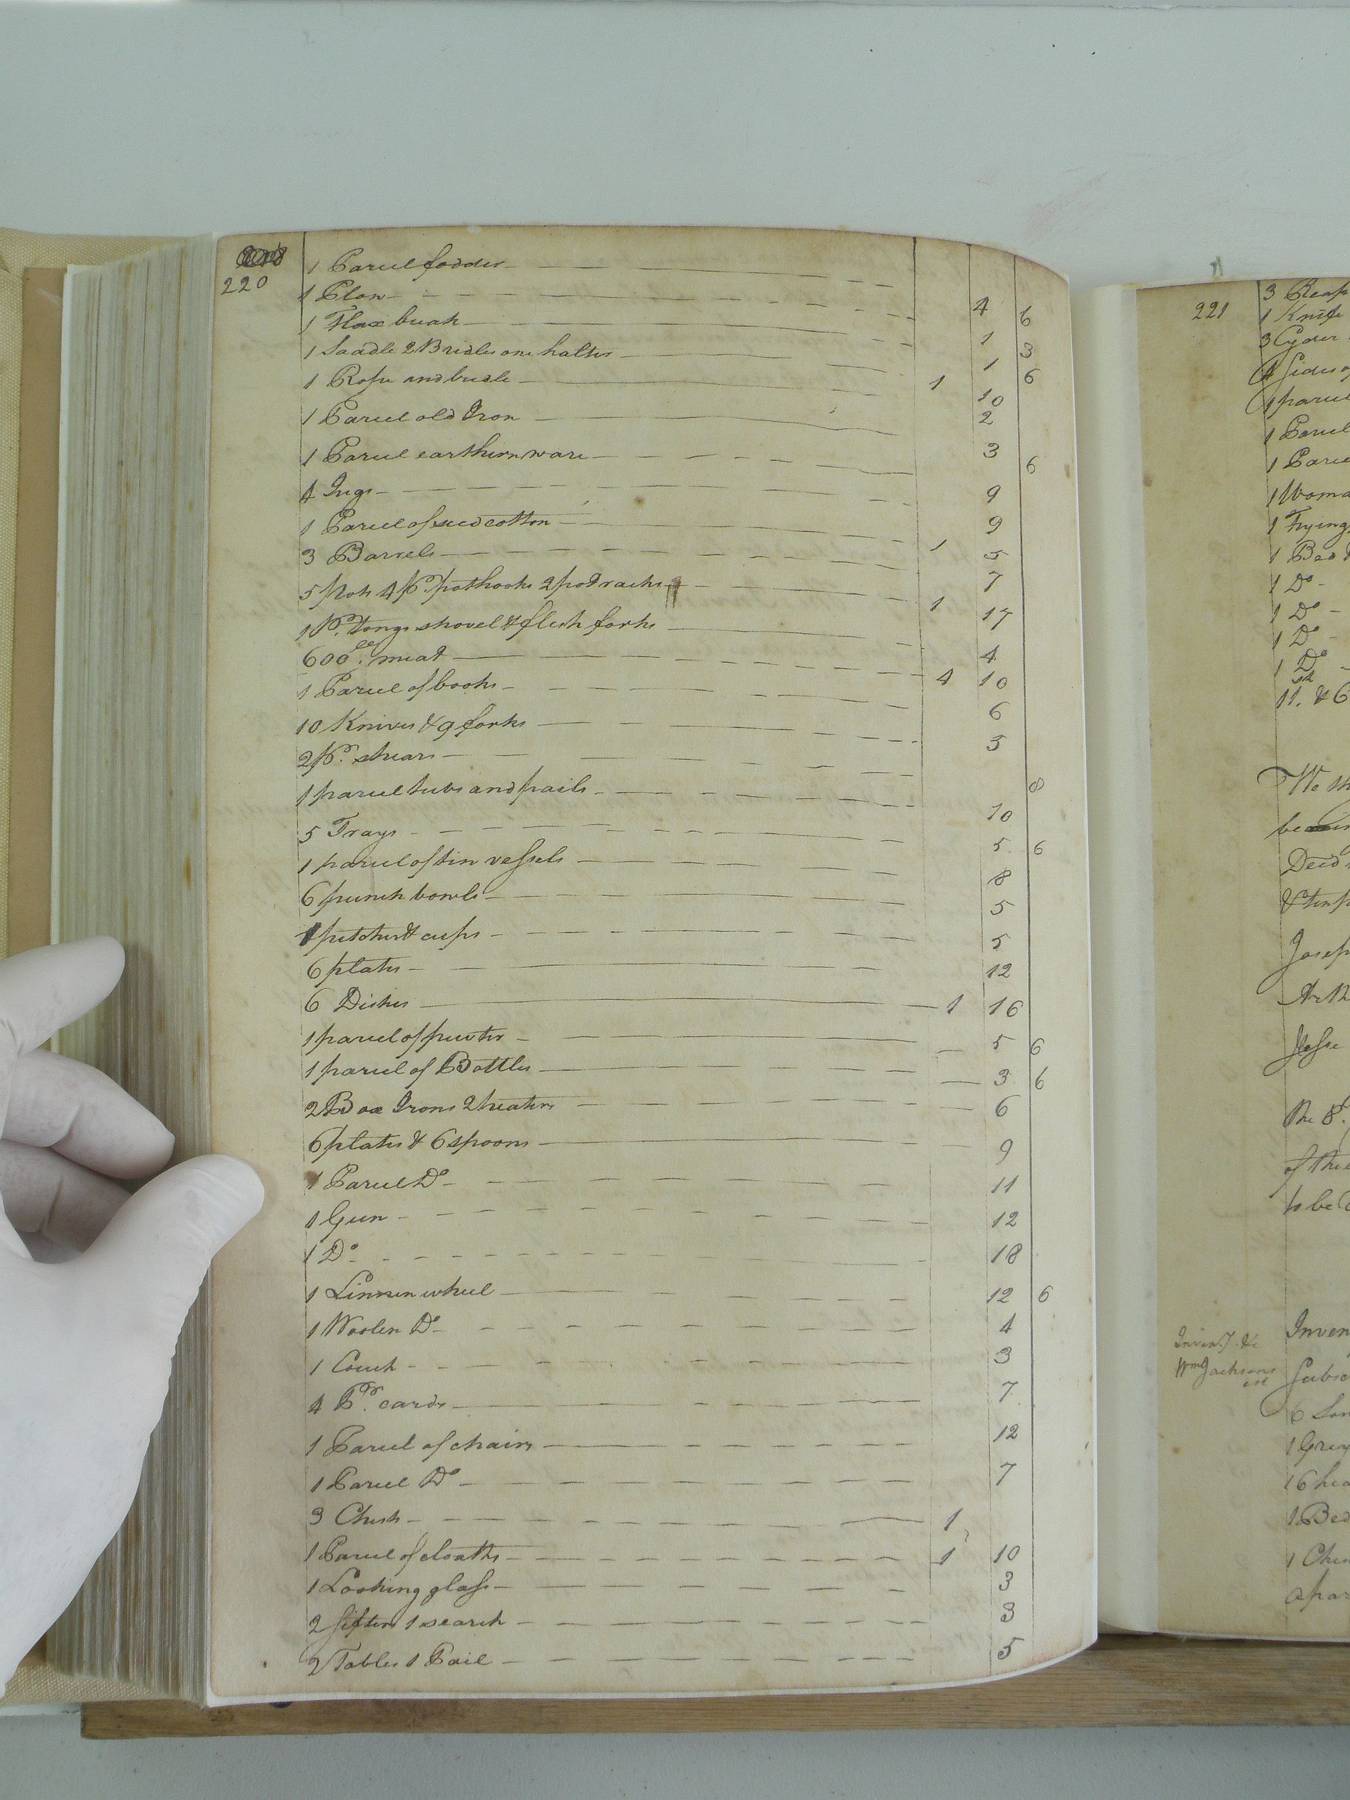 220
1 Parcel fodder
1 Plow 4 6
1 Flax break 1 3
1 Saddle 2 Bridles one halter 1 6
1 Rope and bridle 1 10
1 Parcel old Iron 2
1 Parcel earthern ware 3 6
4 Jugs 9
1 Parcel of seed cotton 9
3 Barrels 1 5
5 Pots 4 pr. pothooks 2 pot racks 7
1 Pr. Tongs shovel & flesh forks 1 17
600 lb. meat 4
1 Parcel of books 4 10
10 Knives & 9 forks 6
2 pr. shears 3
1 parcel tubs and pails 8
5 Trays 10
1 parcel of tin vessels 5 6
6 punch bowls 8
pitcher & cups 5
6 plates 5
6 Dishes 12
1 16
1 parcel of pewter 5 6
1 parcel of Bottles 3 6
2 Box Irons 2 heaters 6
6 plates & 6 spoons 9
1 Parcel Do 11
1 Gun 12
1 Do. 18
1 Linnen wheel 12 6
1 Woolen Do 4
1 Couch 3
4 Pr. cards 7
1 Parcel of chairs 12
1 Parcel Do 7
3 Chests 1
1 Parcel of cloaths 1 10
1 Looking glass 3
2 sifters 1 search 3
2 Tables 1 Pail 5
221
3 Reap
1 Knife
3 Cyder
4 sides of
1 parcel
1 Parcel
1 Parcel
1 Woma
1 Frying
1 Bed
1 Do
1 Do
1 Do
1 Do
11. & 6
We th
Deed
Joseph
Jesse
The 8
of the
to be
Inven.y &c
Wm Jacksons
est
Inven
Subsc
6
1 Grey
16 hea
1 Bed
1 Ches
a par